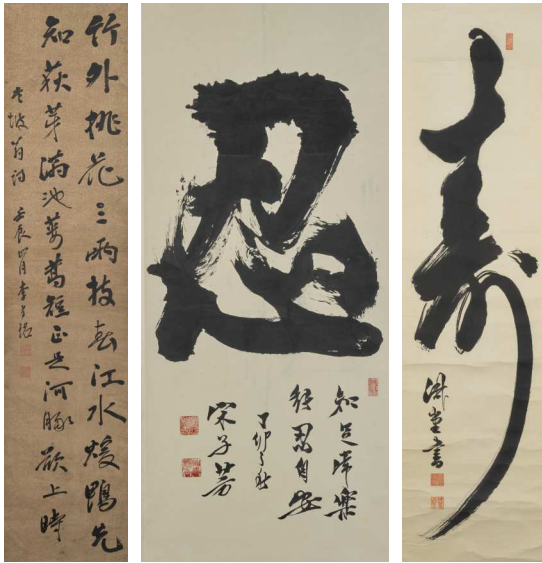 竹外桃花三兩枝春江水煖鴨先
知荻芽滿池蔞蒿短正是河豚欲上時
東坡翁詩 壬辰四月李
忍
知足常樂
能忍自安
丁卯之秋
宋子芳
壽
堂書